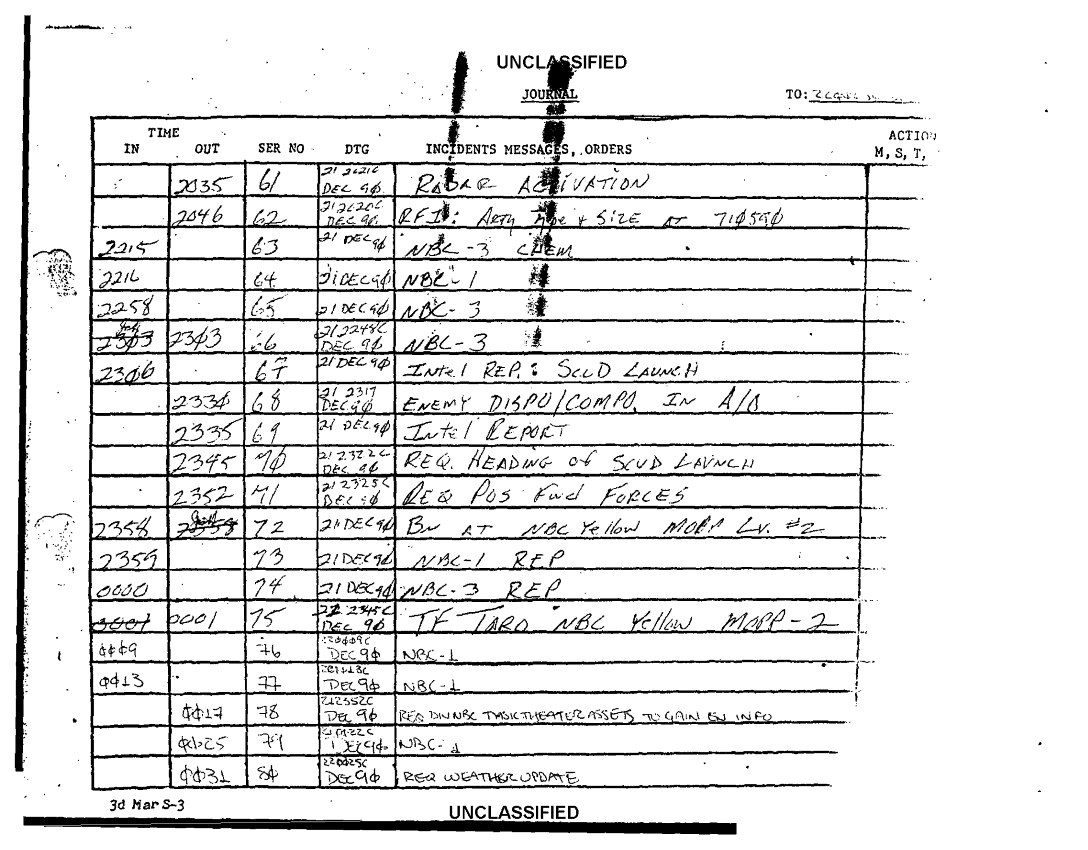 UNCLASSIFIED
JOURNAL
TO:
TIME
ACTION
IN OUT SER NO DTG INCIDENTS MESSAGES, ORDERS M, S, T,
2035 61 DEC 9φ RADAR ACTIVATION
2046 62 DEC 9φ RFI: Arty Type + Size AT 71φ59φ
2215 63 21 DEC 9φ NBC-3 CHEM
2216 64 21 DEC 9φ NBC-1
2258 65 21 DEC 9φ NBC-3
2303 23φ3 66 21 2248C DEC 9φ NBC-3
23φ6 67 21 DEC 9φ Intel REP.: SCUD LAUNCH
233φ 68 21 2317 DEC 9φ ENEMY DISPO/COMPO. IN A/O
2335 69 21 DEC 9φ Intel REPORT
2345 7φ 21 2322C DEC 9φ REQ. HEADING OF SCUD LAUNCH
2352 71 21 2325C DEC 9φ REQ POS Fwd FORCES
2358 2358 72 21 DEC 9φ BN AT NBC Yellow MOPP LV. #2
2359 73 21 DEC 9φ NBC-1 REP
0000 74 21 DEC 9φ NBC-3 REP
0001 0001 75 2345C DEC 9φ TF TARO NBC Yellow MOPP-2
φφφ9 76 DEC 9φ NBC-1
φφ13 77 DEC 9φ NBC-1
φφ17 78 212352C DEC 9φ REQ DIV NBC TASK THEATER ASSETS TO GAIN EN INFO
φφ25 79 DEC 9φ NBC-1
φφ31 8φ 22φφ25C DEC 9φ REQ WEATHER UPDATE
3d Mar S-3
UNCLASSIFIED